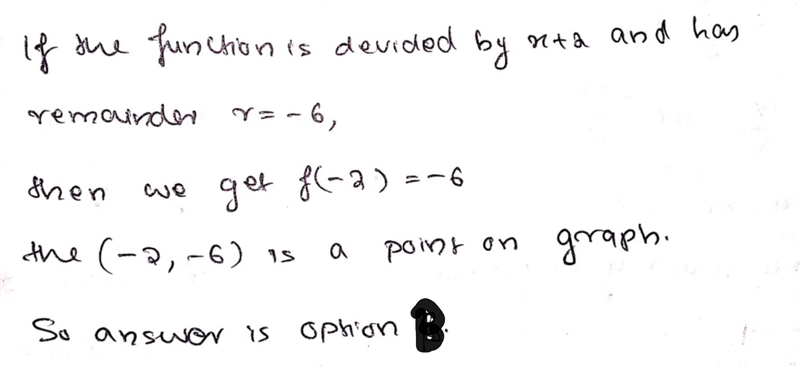 If the function is devided by x+2 and has
remainder r = -6,
then we get f(-2) = -6
the (-2, -6) is a point on graph.
So answer is option B.